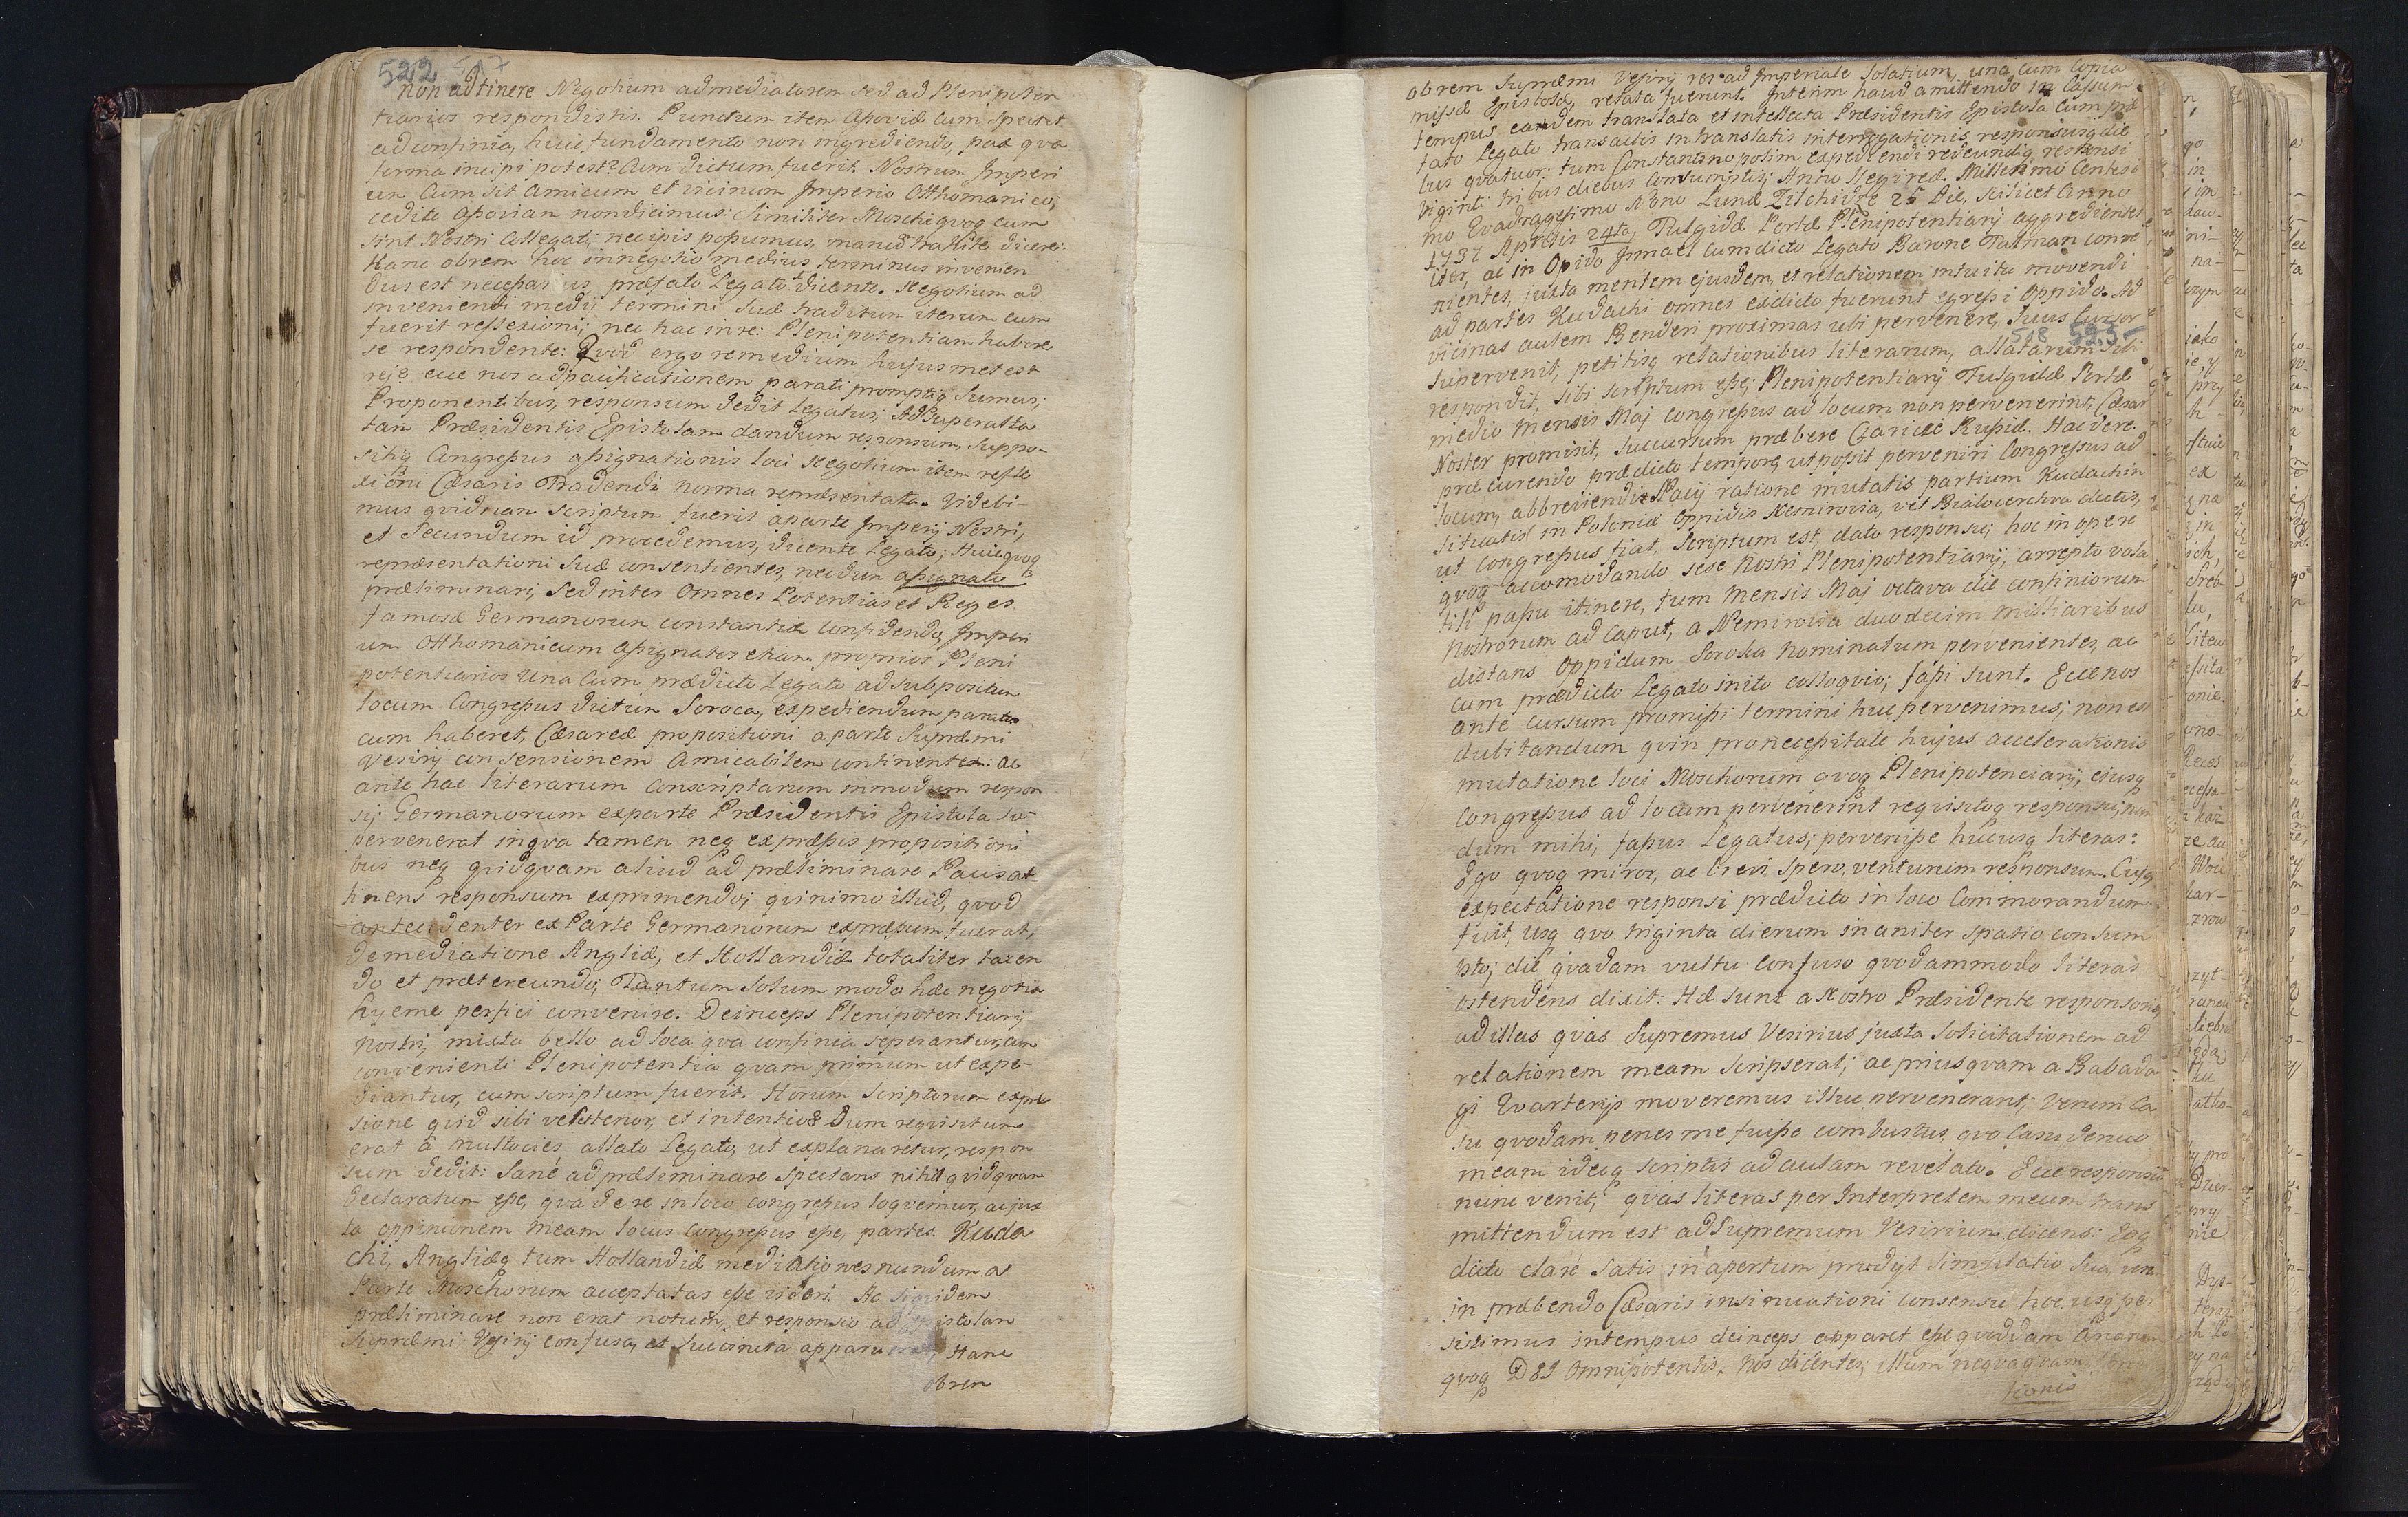 522 517
non adtinere Negotium ad mediatorem sed ad Plenipoten
tiarios respondistis. Punctum item Asoviæ cum spectet
ad confinia, huic fundamento non ingrediendo, pax qva
forma incipi potest? Cum dictum fuerit. Nostrum Imperi
um cum sit amicum et vicinum Imperio Otthomanico,
cedite Asoviam non dicimus: Similiter Moschi qvoq cum
sint Nostri Collegati, nec ipis poßumus, manũ trahite dicere:
Hanc obrem hoc in negotio medius terminus invenien
dus est neceßarius, præfato Legato dicente. Negotium ad
inveniendi medij termini Suæ traditum iterum cum
fuerit reflexioni; nec hac in re: Plenipotentiam habere
se respondente: Qvod ergo remedium hujusmet est
rei? ecce nos ad pacificationem parati promptiq Sumus;
Proponentibus, responsum dedit Legatus; Ad Superalla
tam Præsidentis Epistolam dandum responsum, Suppo-
sitiq Congreßus aßignationis loci Negotium item refle
xioni Cæsaris Tradendi norma repræsentata. Videbi-
mus qvidnam Scriptum fuerit a parte Imperij Nostri,
et Secundum id procedemus, dicente Legato; Huic qvoq
repræsentationi Suæ consentientes, necdum aßignato
præliminari, Sed inter Omnes Potentias et Reges
famosæ Germanorum constantiæ confidendo, Imperi
um Otthomanicum aßignatos etiam proprios Pleni
potentiarios una Cum prædicto Legato ad subpositum
locum Congreßus dictum Soroca, expediendum paratos
cum haberet, Cæsareæ propositioni a parte Supræmi
Vesirij consensionem Amicabilem continentem: ac
ante hac literarum Conscriptarum in modum respon
si; Germanorum ex parte Præsidentis Epistola Su-
pervenerat in qva tamen neq expreßis propositioni
bus neq qvidqvam aliud ad præliminare Pacis at-
tinens responsum exprimendo; qvinimo illud, qvod
antecedenter ex Parte Germanorum expreßum fuerat,
de mediatione Angliæ, et Hollandiæ totaliter tacen
do et prætereundo; Tantum Solum modo hæc negotia
hyeme perfici convenire. Deinceps Plenipotentiarij
nostri, mixta bello ad loca qva confinia seperantur, cum
convenienti Plenipotentia qvam primum ut expe-
diantur, cum scriptum fuerit. Horum Scriptorum expre
sione qvid sibi velit tenor, et intentio? Dum reqvisitum
erat a multocies allato Legato, ut explanaretur, respon
sum dedit: Sané ad præliminare Spectans nihil qvidqvam
declaratum eße, qva de re in loco congreßus loqvemur, ac jux
ta oppinionem meam locus Congreßus eße, partes Kuda
chi, Angliæq tum Hollandiæ mediationes nundum a
Parte Moschorum acceptatas eße videri. Ac siqvidem
præliminare non erat notum, et responsio ad epistolam
Supræmi Vesirij confusa, et Succincta apparuerat, Hanc
obrem
obrem Supræmi Vesirij res ad Imperiale Solatium, una cum Copia
mißæ Epistolæ, relata fuerunt. Interim haud amittendo in Caßum
tempus, eandem translata et intellecta Præsidentis Epistola Cum præ
fato Legato transactis in translatis interrogationis, responsusq die
bus qvatuor: tum Constantinopolim expediendi redeundiq responsi
viginti tribus diebus Consumptis; Anno Hegiræ Millesimo Centesi
mo Qvadragesimo Nono Lunæ Zilchidze 25 Die, scilicet Anno
1737 Aprilis 24ta, Fulgidæ Portæ Plenipotentiarij aggredientes
iter, ac in Opido Jsmael cum dicto Legato Barone Talman conve
nientes, juxta mentem ejusdem, et relationem intuitu movendi
ad partes Kudachi omnes exdicto fuerunt egreßi Oppido. Ad
vicinas autem Benderi proximas ubi pervenere, Suus Cursor
518 523
Supervenit, petitisq relationibus literarum, allatarum Sibi
respondit, Sibi scriptum eße; Plenipotentiarij Fulgidæ Portæ
medio Mensis Maj Congreßus ad locum non pervenerint, Cæsar
Noster promisit, Succursum præbere Czaricæ Rußiæ. Hac de re
præcurendo prædicto tempore, ut poßit perveniri Congreßus ad
locum, abbreviendi Spacij ratione mutatis partium Kudachin
situatis in Poloniæ Oppidis Nemirovia, vel Bialocerchva dictis,
ut Congreßus fiat, Scriptum est, dato responsu; hoc in opere
qvoq accomodando sese Nostri Plenipotentiarij, arrepto vola
tili paßu itinere, tum Mensis Maj octava die confiniorum
Nostrorum ad Caput, a Nemirovia duodecim milliaribus
distans Oppidum Soroka nominatum pervenientes, ac
cum prædicto Legato inito colloqvio; faßi sunt. Ecce nos
ante cursum promißi termini huc pervenimus; non est
dubitandum qvin pro neceßitate hujus accelerationis
mutatione loci Moschorum qvoq Plenipotenciarij, ejusq
Congreßus ad locum pervenerint reqvisitoq responsu; non
dum mihi, faßus Legatus; perveniße hucusq literas:
Ego qvoq miror, ac heri spero, venturum responsum. Cujq
expectatione responsi prædicto in loco Commorandum
fuit, usq qvo triginta dierum inaniter spatio consum
pto; die qvadam vultu confuso qvodammodo literas
ostendens dixit: Hæ sunt a Nostro Præsidente responsoriæ
ad illas qvas Supremus Vesirius juxta Solicitationem ad
relationem meam Scripserat; ac priusqvam a Babada
gi Qvarterijs moveremus illuc pervenerant; Verum Ca
su qvodam penes me fuiße combustus, qvo Casu denuo
meam ideoq scriptis ad aulam revelato. Ecce responsio
nunc venit, qvas literas per Interpretem meum trans
mittendum est ad Supremum Vesirium dicens: Eoq
dicto claré Satis in apertum prodijt Simulatio Sua,
in præbendo Cæsaris insinuationi consensu hoc usq per
sistimus in tempus deinceps apparet eße qvoddam
qvoq DEI Omnipotentis. Nos dicentes; illum neqvaqvam
tionis